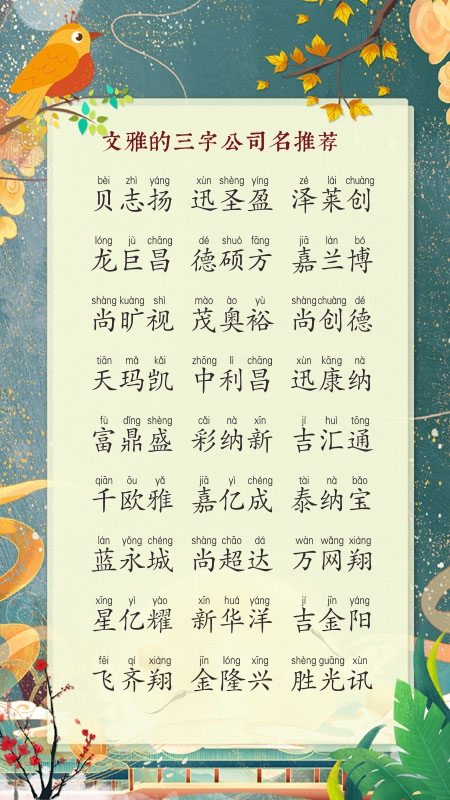 文雅的三字公司名推荐
bèi zhì yáng xùn shèng yíng zé lái chuàng
贝志扬 迅圣盈 泽莱创
lóng jù chāng dé shuò fāng jiā lán bó
龙巨昌 德硕方 嘉兰博
shàng kuàng shì mào ào yù shàng chuàng dé
尚旷视 茂奥裕 尚创德
tiān mǎ kǎi zhōng lì chāng xùn kāng nà
天玛凯 中利昌 迅康纳
fù dǐng shèng cǎi nà xīn jí huì tōng
富鼎盛 彩纳新 吉汇通
qiān ōu yǎ jiā yì chéng tài nà bǎo
千欧雅 嘉亿成 泰纳宝
lán yǒng chéng shàng chāo dá wàn wǎng xiáng
蓝永城 尚超达 万网翔
xīng yì yào xīn huá yáng jí jīn yáng
星亿耀 新华洋 吉金阳
fēi qí xiáng jīn lóng xīng shèng guāng xùn
飞齐翔 金隆兴 胜光讯